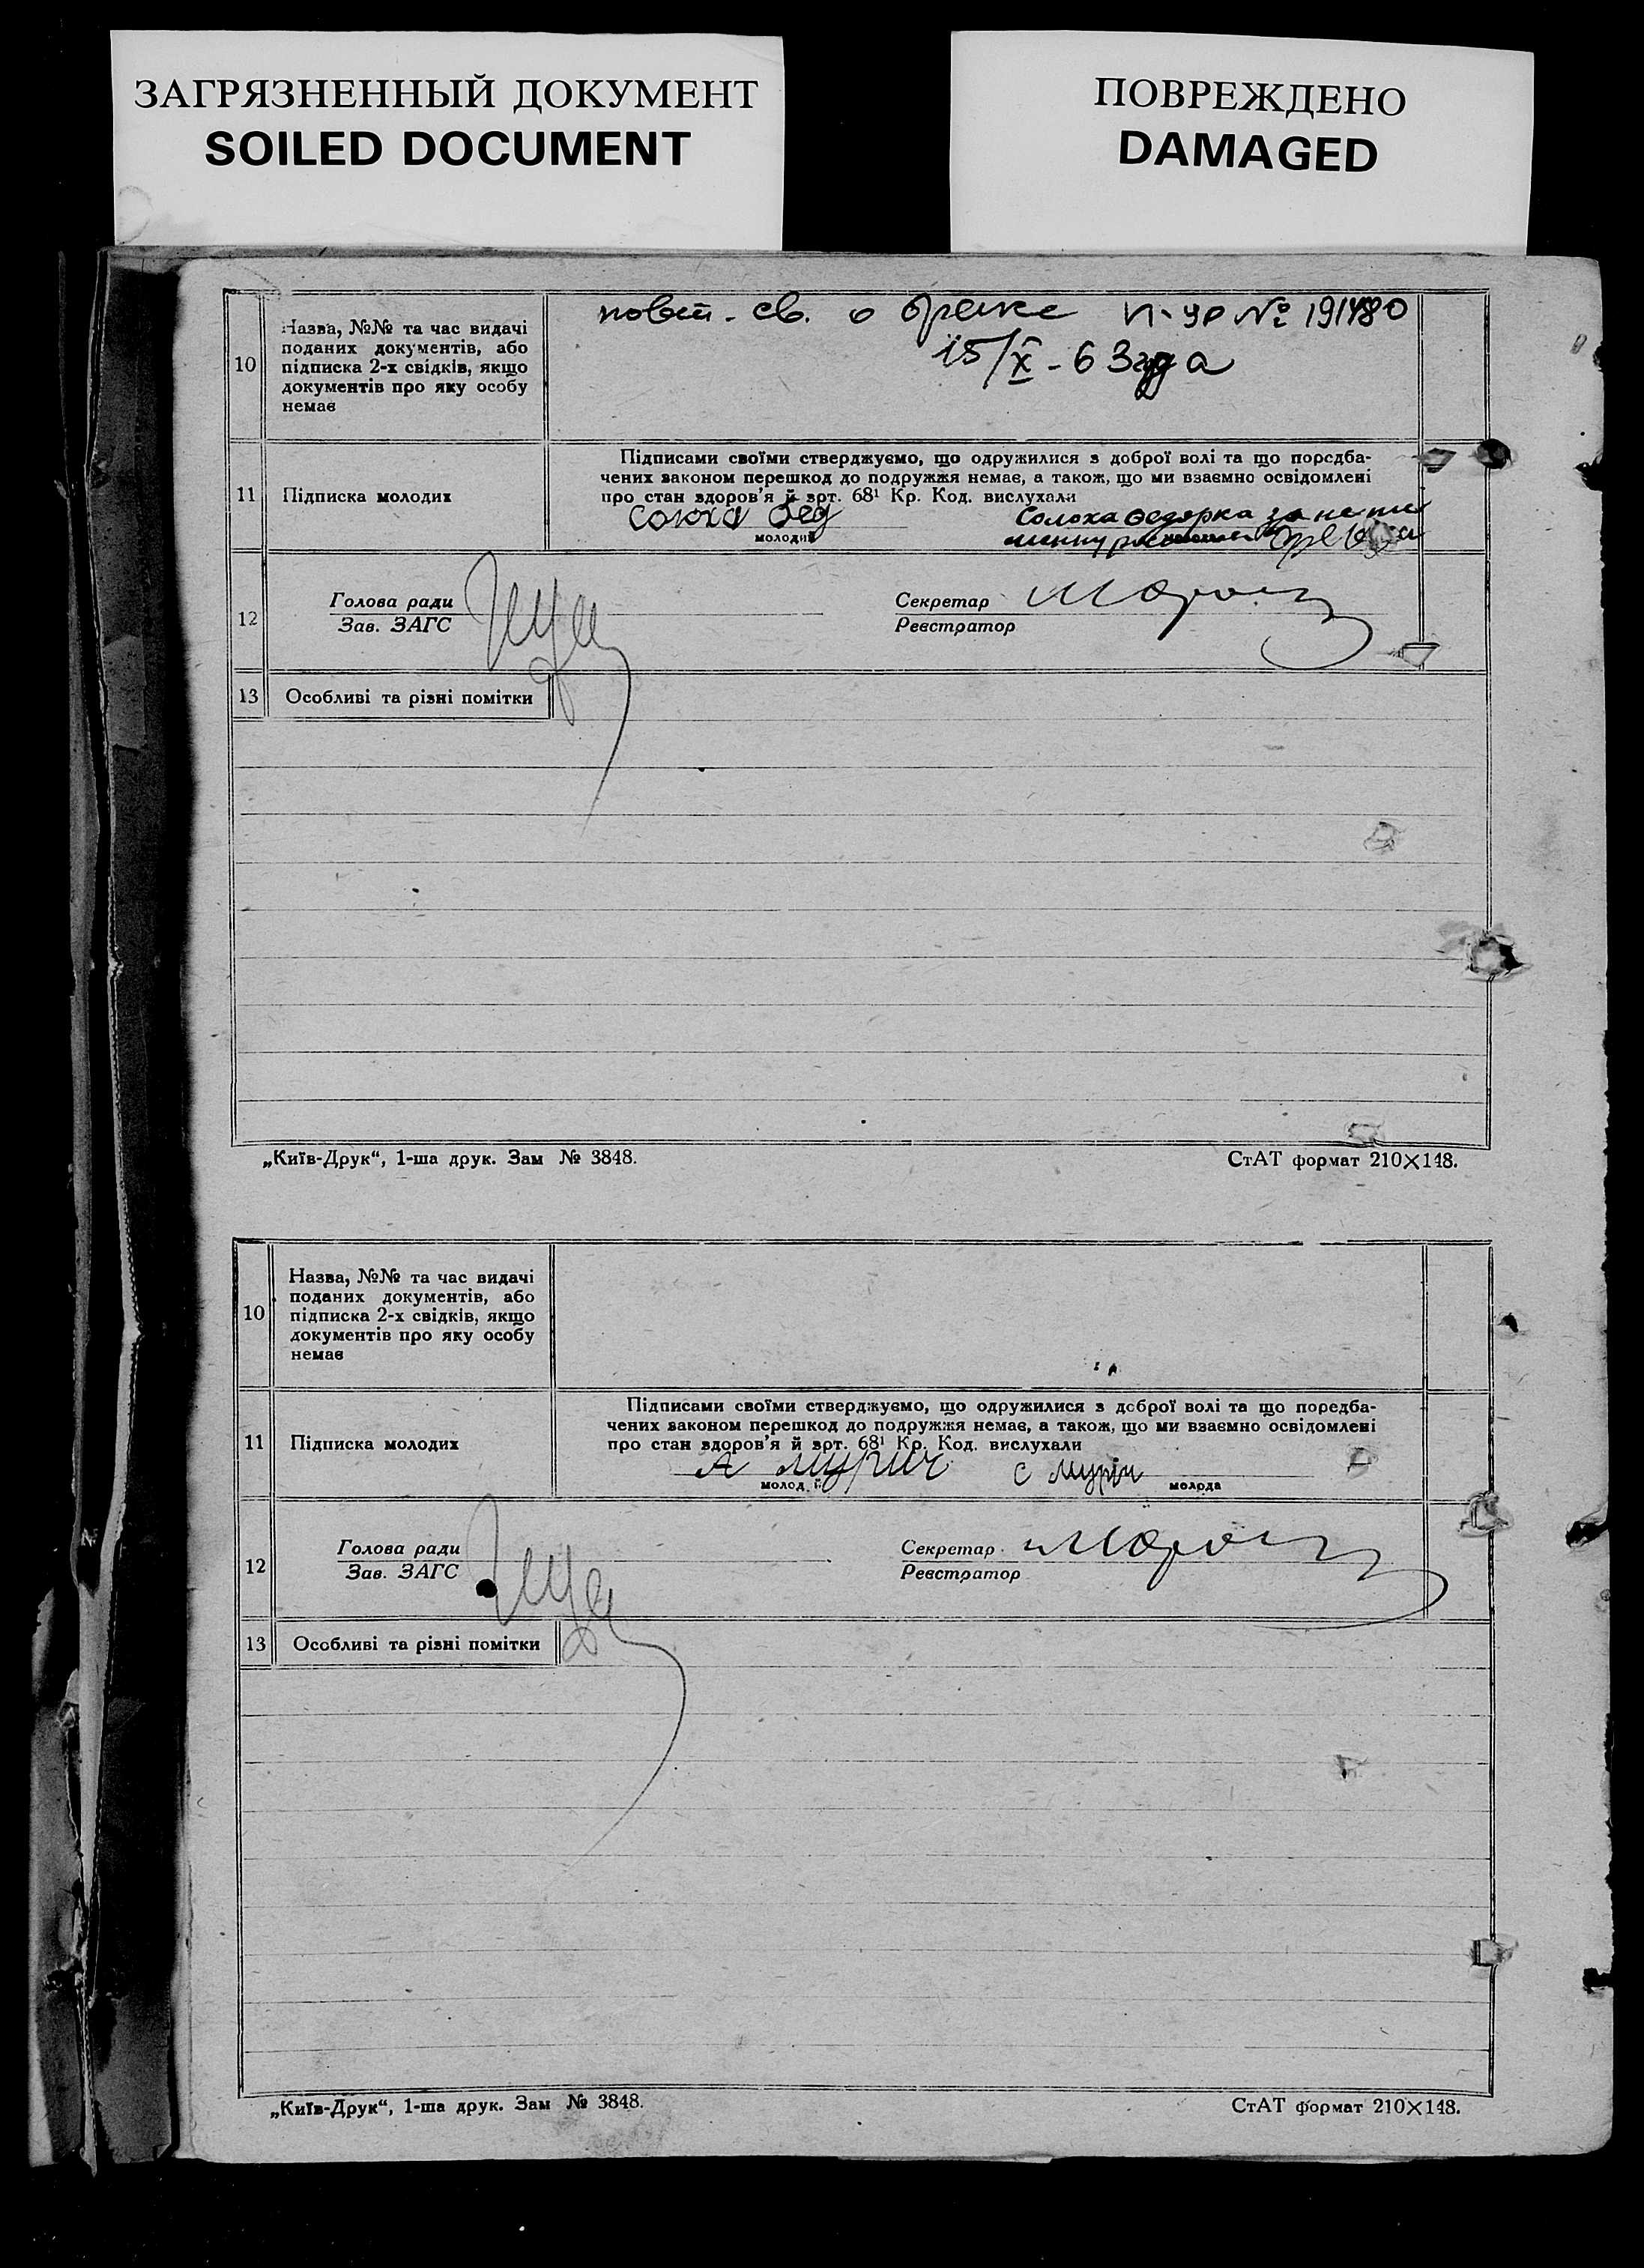 ЗАГРЯЗНЕННЫЙ ДОКУМЕНТ
SOILED DOCUMENT
ПОВРЕЖДЕНО
DAMAGED
10
Назва, №№ та час видачі
поданих документів, або
підписка 2-х свідків, якщо
документів про яку особу
немає
повт. св. о браке II-УР № 191480
15/X - 63 года
11
Підписка молодих
Підписами своїми стверджуємо, що одружилися з доброї волі та що передба-
чених законом перешкод до подружжя немає, а також, що ми взаємно освідомлені
про стан здоров'я й арт. 68¹ Кр. Код. вислухали
Солоха Фед
Солоха Федорка за не пис
молодий
12
Голова ради
Зав. ЗАГС
Секретар Мороз
Реєстратор
13
Особливі та різні помітки
„Київ-Друк“, 1-ша друк. Зам № 3848.
СтАТ формат 210×148.
10
Назва, №№ та час видачі
поданих документів, або
підписка 2-х свідків, якщо
документів про яку особу
немає
11
Підписка молодих
Підписами своїми стверджуємо, що одружилися з доброї волі та що передба-
чених законом перешкод до подружжя немає, а також, що ми взаємно освідомлені
про стан здоров'я й арт. 68¹ Кр. Код. вислухали
А
С
молодий
молода
12
Голова ради
Зав. ЗАГС
Секретар Мороз
Реєстратор
13
Особливі та різні помітки
„Київ-Друк“, 1-ша друк. Зам № 3848.
СтАТ формат 210×148.